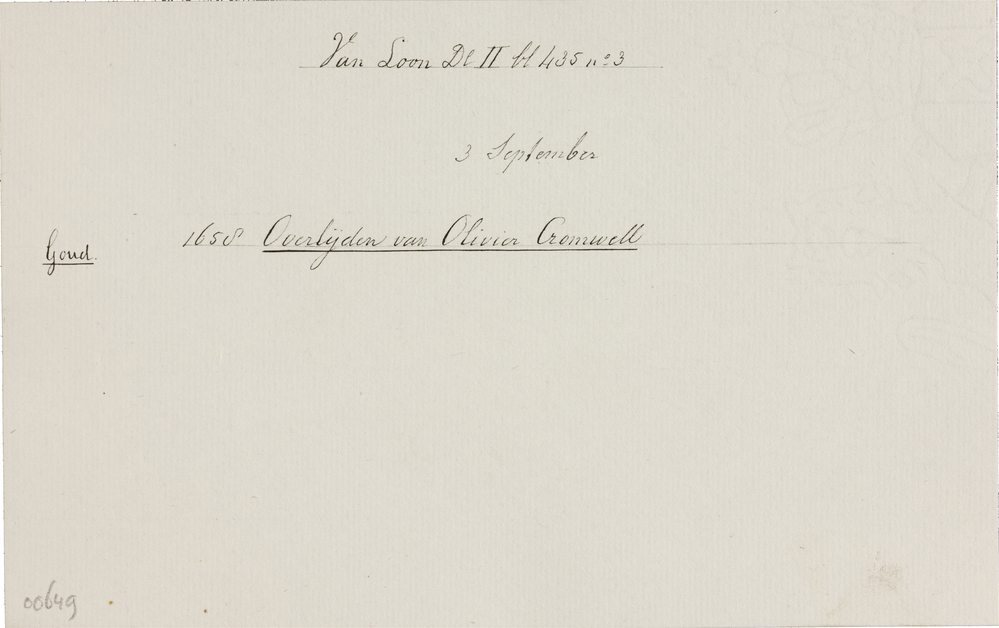 Van Loon Dl II bl 435 no 3
3 September
1658 Overlijden van Olivier Cromwell
Goud.
00649